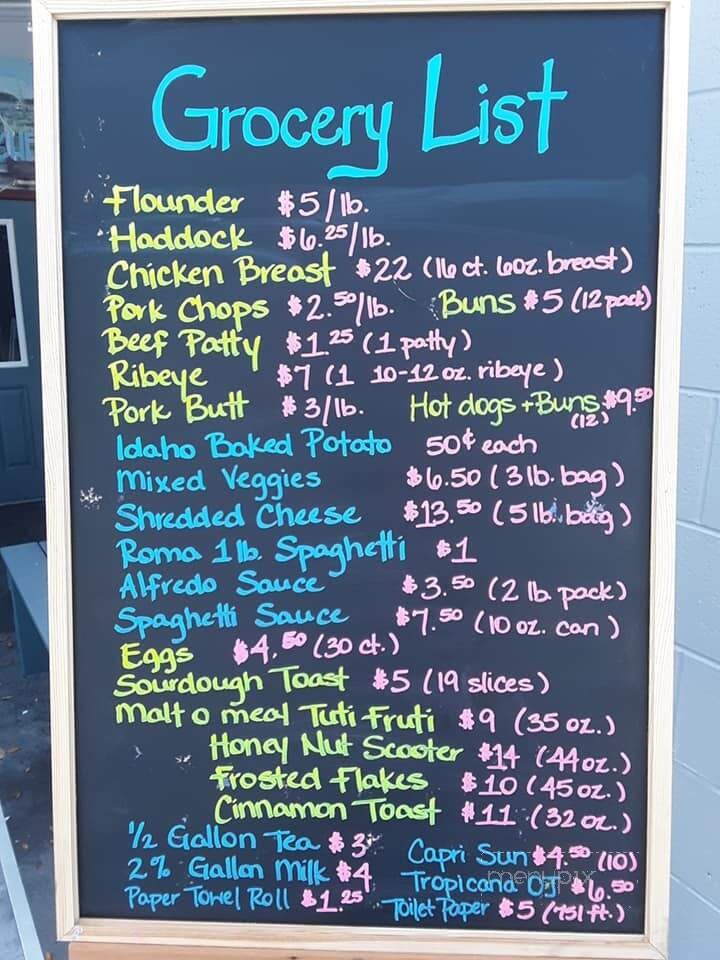 Grocery List
Flounder $5/lb.
Haddock $6.25/lb.
Chicken Breast $22 (16 ct. 6oz. breast)
Pork Chops $2.50/lb. Buns $5 (12 pack)
Beef Patty $1.25 (1 patty)
Ribeye $7 (1 10-12 oz. ribeye)
Pork Butt $3/lb. Hot dogs + Buns $9.50
(12)
Idaho Baked Potato 50¢ each
Mixed Veggies $6.50 (3 lb. bag)
Shredded Cheese $13.50 (5 lb. bag)
Roma 1 lb. Spaghetti $1
Alfredo Sauce $3.50 (2 lb. pack)
Spaghetti Sauce $7.50 (10 oz. can)
Eggs $4.50 (30 ct.)
Sourdough Toast $5 (19 slices)
Malt o meal Tuti Fruti $9 (35 oz.)
Honey Nut Scooter $14 (44 oz.)
Frosted Flakes $10 (45 oz.)
Cinnamon Toast $11 (32 oz.)
1/2 Gallon Tea $3 Capri Sun $4.50 (10)
2% Gallon Milk $4 Tropicana OJ $6.50
Paper Towel Roll $1.25 Toilet Paper $5 (751 ft.)
menupix